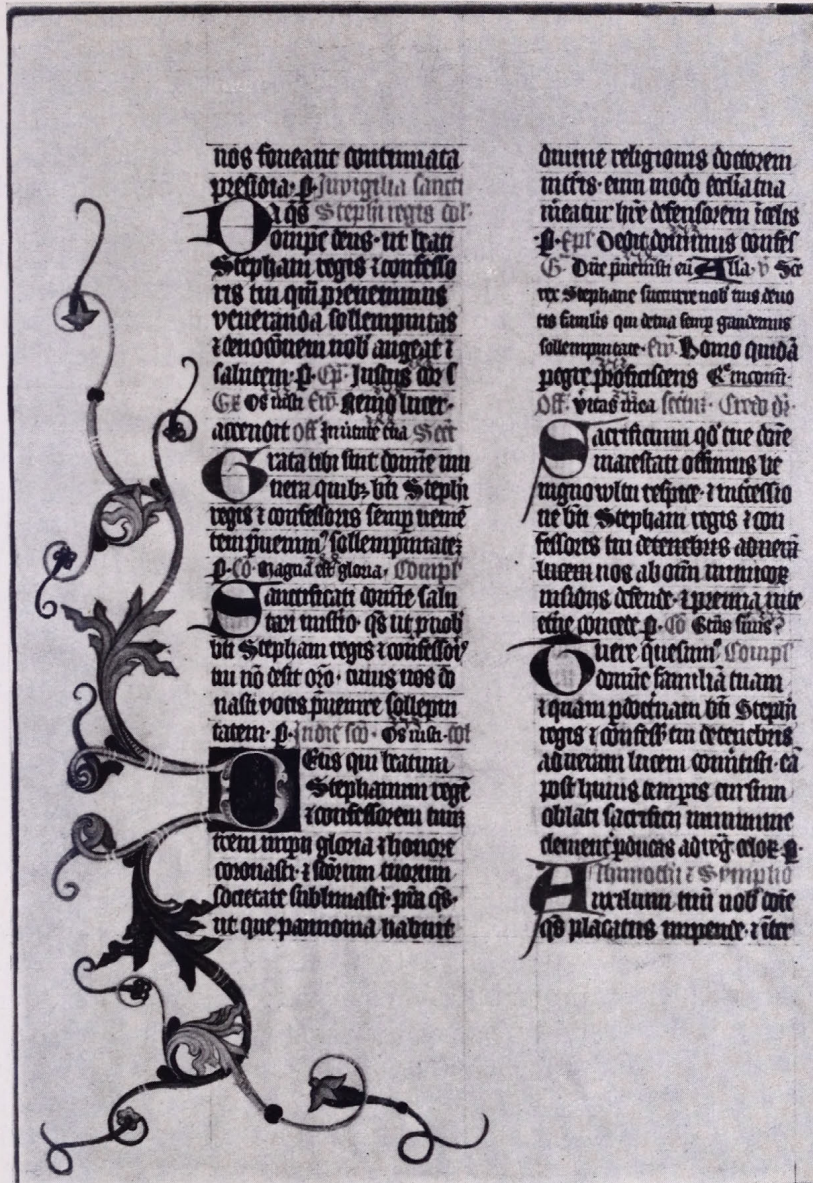 nos foueant continuata
presidia· P· In vigilia sancti
Da q̄s Steph̄i regis col·
ompe deus· ut beati
Stephani regis ⁊ confesso
ris tui quā preuenimus
veneranda sollempnitas
⁊ deuocōnem nob̄ augeat ⁊
salutem· P· Ep̄· Justus cor s
Gͬ Os iusti Ew̄ Nemo lucer·
accendit Off In v̄tute tua Secr̄
Grata tibi sint domīe mu
nera quib⁊ bt̄i Steph̄i
regis ⁊ confessoris semp ueme
tem p̄uenim⁹ sollempnitatē
P· Cō Magna est gloria· Compl̄
Sanctificati domīe salu
tari misterio· q̄s ut p̄ nob̄
bt̄i Stephani regis ⁊ confessor̄
tui nō desit orō· cuius nos do
nasti votis p̄uenire sollepni
tatem· P· In die sc̄o· Os iusti· Col
Deus qui beatum
Stephanum regē
⁊ confessorem tuū
trem impn̄ gloria ⁊ honore
coronasti· ⁊ sc̄orum tuorum
societate sublimasti· pr̄a q̄s·
ut que pannonia habuit
diuine religionis doctorem
in terris· eum modo eccl̄ia tua
meatur h̄re defensorem ī celis
P· Ep̄l Dedit dominus confes
G· Dn̄e p̄uenisti eū Alla· v̄ Sc̄e
rex Stephane succurre nob̄ tuis deuo
tis famlis qui de tua semp̄ gaudemus
sollempnitate· Ew̄· Homo quidā
peregre proficiscens
Off· Veritas mea Secr̄· Credo dr̄·
Sacrificium qd̄ tue domīe
maiestati offerimus be
nigno vultu respice· ⁊ intercessio
ne bt̄i Stephani regis ⁊ con
fessores tui de tenebris ad uerā
lucem nos ab omī inimicoꝝ
uisions defende· ⁊ premia uite
et̄ne concede P· Cō
Tuere quesum⁹ Compl̄
domīe familiā tuam
⁊ quam p̄ doctrinam bt̄i Steph̄i
regis ⁊ confess̄ tui de tenebris
ad ueram lucem conūtisti· eā
post huius temp̄is cursum
oblati sacrificii munimine
clement̄ p̄ducas ad reḡ celoꝝ P·
Thimothei ⁊ Simpho
Auxilium tuū nob̄ domīe
q̄s placatus impende· ⁊ int̄er